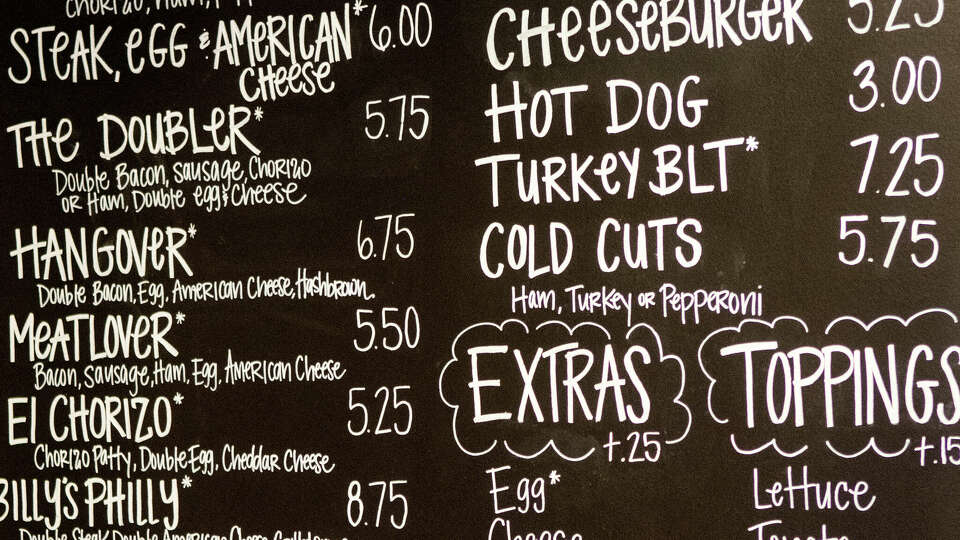 Chorizo, Ham, Pepp
Steak, Egg & American* 6.00
Cheese
The Doubler* 5.75
Double Bacon, Sausage, Chorizo
or Ham, Double egg & Cheese
Hangover* 6.75
Double Bacon, Egg, American Cheese, Hashbrown
Meatlover* 5.50
Bacon, Sausage, Ham, Egg, American Cheese
El Chorizo* 5.25
Chorizo Patty, Double Egg, Cheddar Cheese
Billy's Philly* 8.75
Double Steak, Double American Cheese,
Cheeseburger 5.25
Hot Dog 3.00
Turkey BLT* 7.25
Cold Cuts 5.75
Ham, Turkey or Pepperoni
Extras
+.25
Egg*
Cheese
Toppings
+.15
Lettuce
Tomato